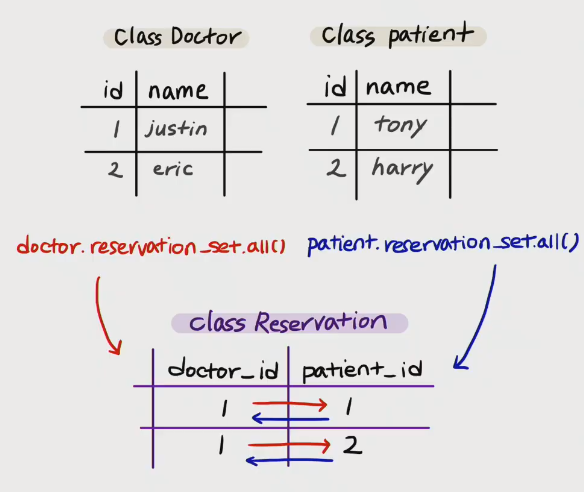 Class Doctor
id name
1 justin
2 eric
Class patient
id name
1 tony
2 harry
doctor.reservation_set.all()
patient.reservation_set.all()
Class Reservation
doctor_id patient_id
1 1
1 2